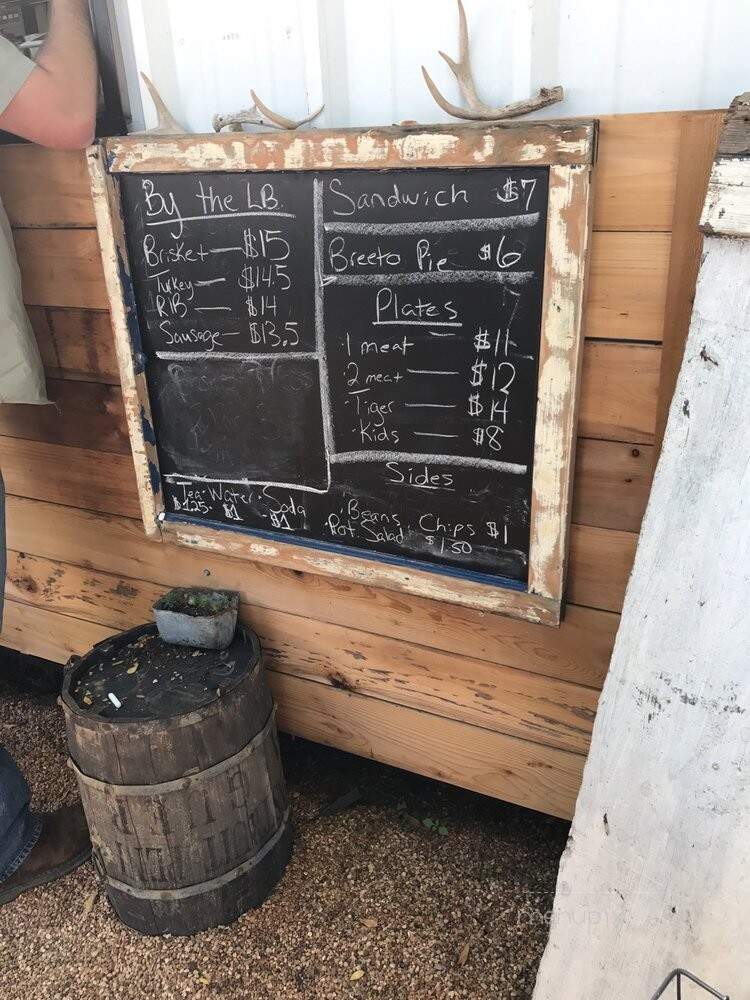 By the LB.
Brisket — $15
Turkey — $14.5
RIB — $14
Sausage — $13.5
Sandwich $7
Breeto Pie $6
Plates
·1 meat — $11
·2 meat — $12
·Tiger — $14
·Kids — $8
Tea · Water · Soda
$1.25 · $1 · $1
Sides
·Beans · Chips $1
Pot. Salad $1.50
menupix